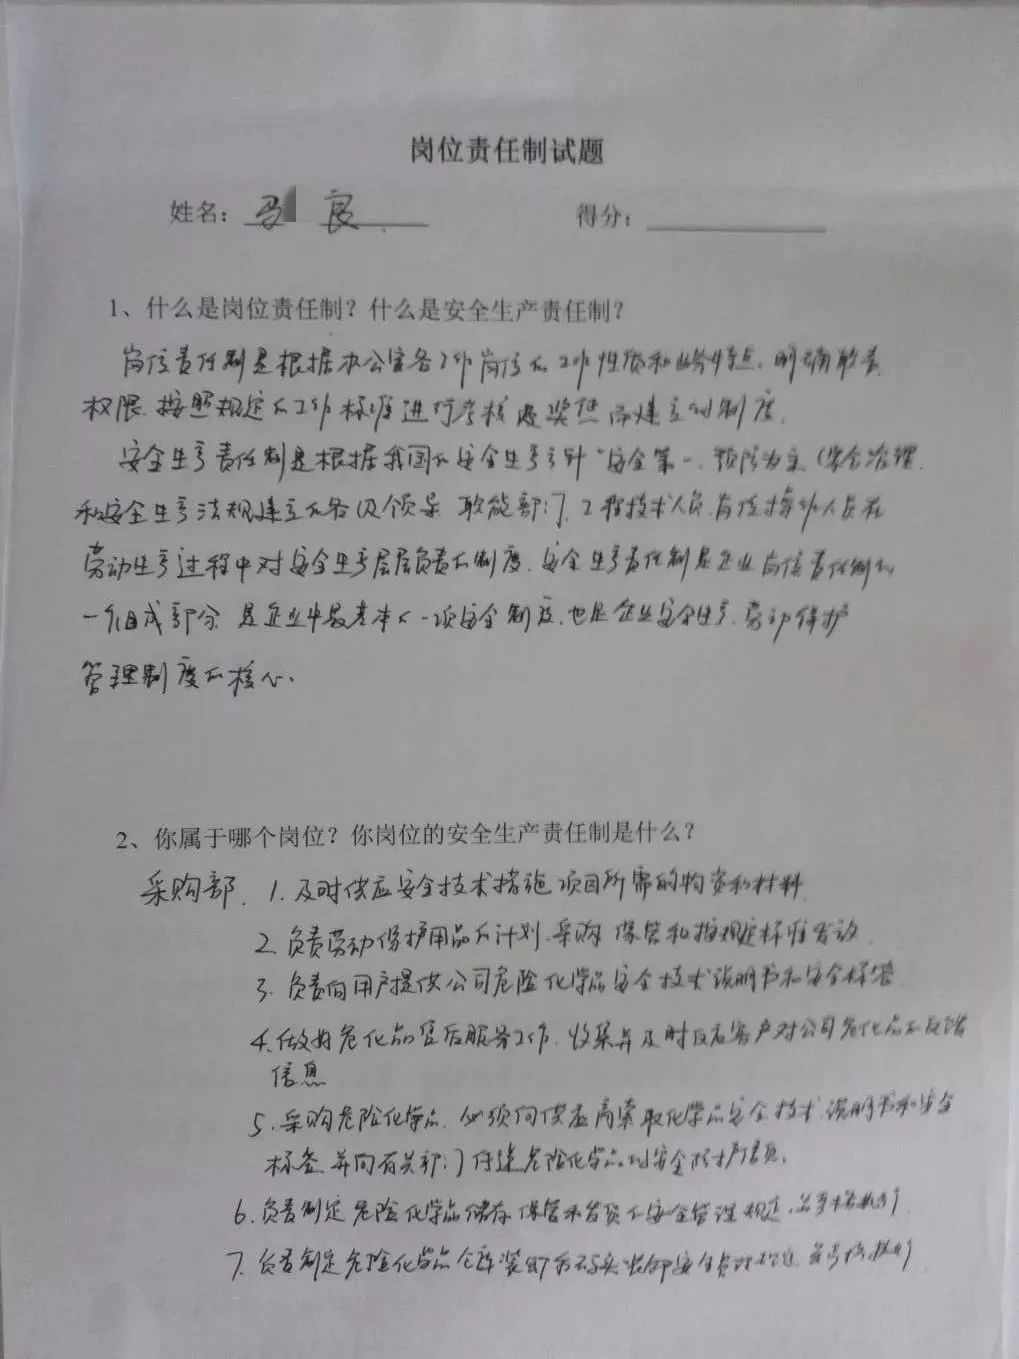 岗位责任制试题
姓名：马 良
得分：
1、什么是岗位责任制？什么是安全生产责任制？
岗位责任制是根据办公室各工作岗位的工作性质和业务特点，明确职责
权限，按照规定的工作标准进行考核及奖惩而建立的制度。
安全生产责任制是根据我国的安全生产方针“安全第一，预防为主，综合治理
和安全生产法规建立的各级领导 职能部门，工程技术人员，岗位操作人员在
劳动生产过程中对安全生产层层负责的制度，安全生产责任制是企业岗位责任制的
一个组成部分，是企业中最基本的一项安全制度，也是企业安全生产，劳动保护
管理制度的核心。
2、你属于哪个岗位？你岗位的安全生产责任制是什么？
采购部。 1. 及时供应安全技术措施项目所需的物资和材料
2. 负责劳动保护用品的计划，采购 保管和按规定标准发放
3. 负责向用户提供公司危险化学品安全技术说明书和安全标签
4. 做好危化品售后服务工作，收集并及时反应客户对公司危化品的反馈
信息
5. 采购危险化学品，必须向供应商索取化学品安全技术说明书和安全
标签 并向有关部门传递危险化学品的安全防护信息。
6. 负责制定危险化学品储存 保管和发货的安全管理规定，
7. 负责制定危险化学品仓库装卸和码头装卸安全管理规定